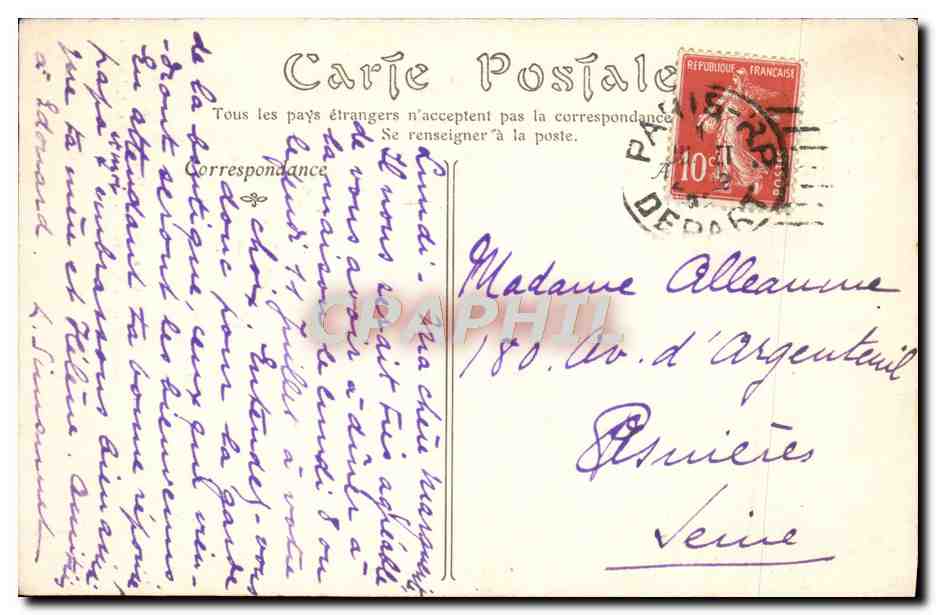 Carte Postale
Tous les pays étrangers n'acceptent pas la correspondance
Se renseigner à la poste.
Correspondance
REPUBLIQUE FRANÇAISE
10
POSTES
PARIS-R.P.
DEPART
CRAPHIL
Lundi - Ma chère Marguerite
Il nous serait très agréable
de vous avoir à dîner à
la maison le lundi 8 ou
le jeudi 11 juillet à votre
choix. Entendez-vous
donc pour la garde
de la boutique, ceux qui vien-
-dront seront les bienvenus
En attendant ta bonne réponse
papa vous embrassons ainsi
que ta mère et Hélène. Amitiés
à Edouard L. Simonnet
Madame Alleaume
180. Av. d'Argenteuil
Asnières
Seine